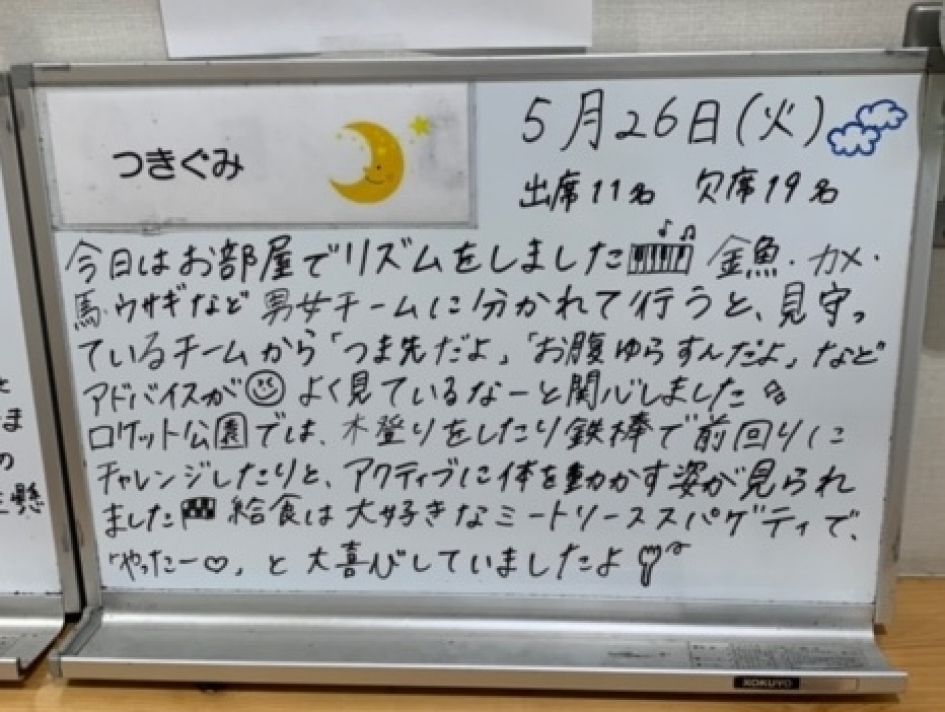 つきぐみ
5月26日(火)
出席11名 欠席19名
今日はお部屋でリズムをしました 金魚・カメ・
馬・ウサギなど男女チームに分かれて行うと、見守っ
ているチームから「つま先だよ」「お腹ゆらすんだよ」など
アドバイスが よく見ているなーと関心しました
ロケット公園では、木登りをしたり鉄棒で前回りに
チャレンジしたりと、アクティブに体を動かす姿が見られ
ました 給食は大好きなミートソーススパゲティで、
「やったー♡」と大喜びしていましたよ
と
ま
の
懸
KOKUYO